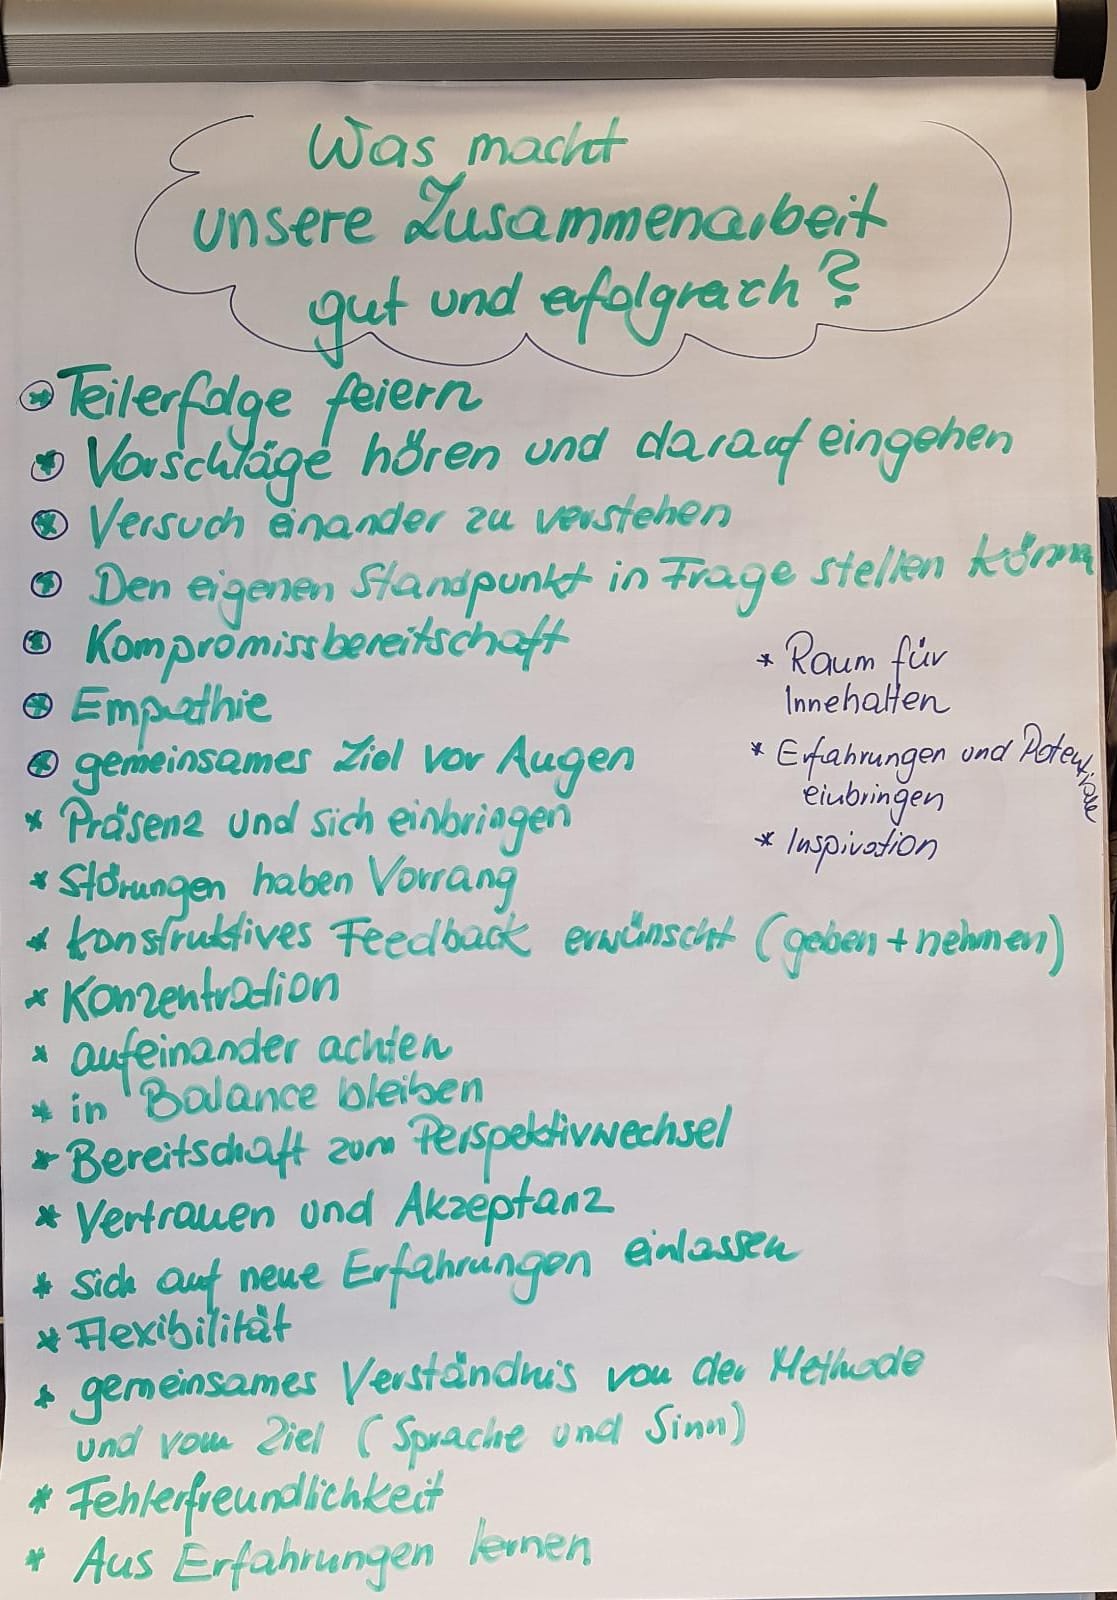 Was macht
unsere Zusammenarbeit
gut und erfolgreich?
* Teilerfolge feiern
* Vorschläge hören und darauf eingehen
* Versuch einander zu verstehen
* Den eigenen Standpunkt in Frage stellen können
* Kompromissbereitschaft
* Empathie
* gemeinsames Ziel vor Augen
* Präsenz und sich einbringen
* Störungen haben Vorrang
* konstruktives Feedback erwünscht (geben + nehmen)
* Konzentration
* aufeinander achten
* in Balance bleiben
* Bereitschaft zum Perspektivwechsel
* Vertrauen und Akzeptanz
* sich auf neue Erfahrungen einlassen
* Flexibilität
* gemeinsames Verständnis von der Methode
und vom Ziel (Sprache und Sinn)
* Fehlerfreundlichkeit
* Aus Erfahrungen lernen
* Raum für
Innehalten
* Erfahrungen und Potentiale
einbringen
* Inspiration